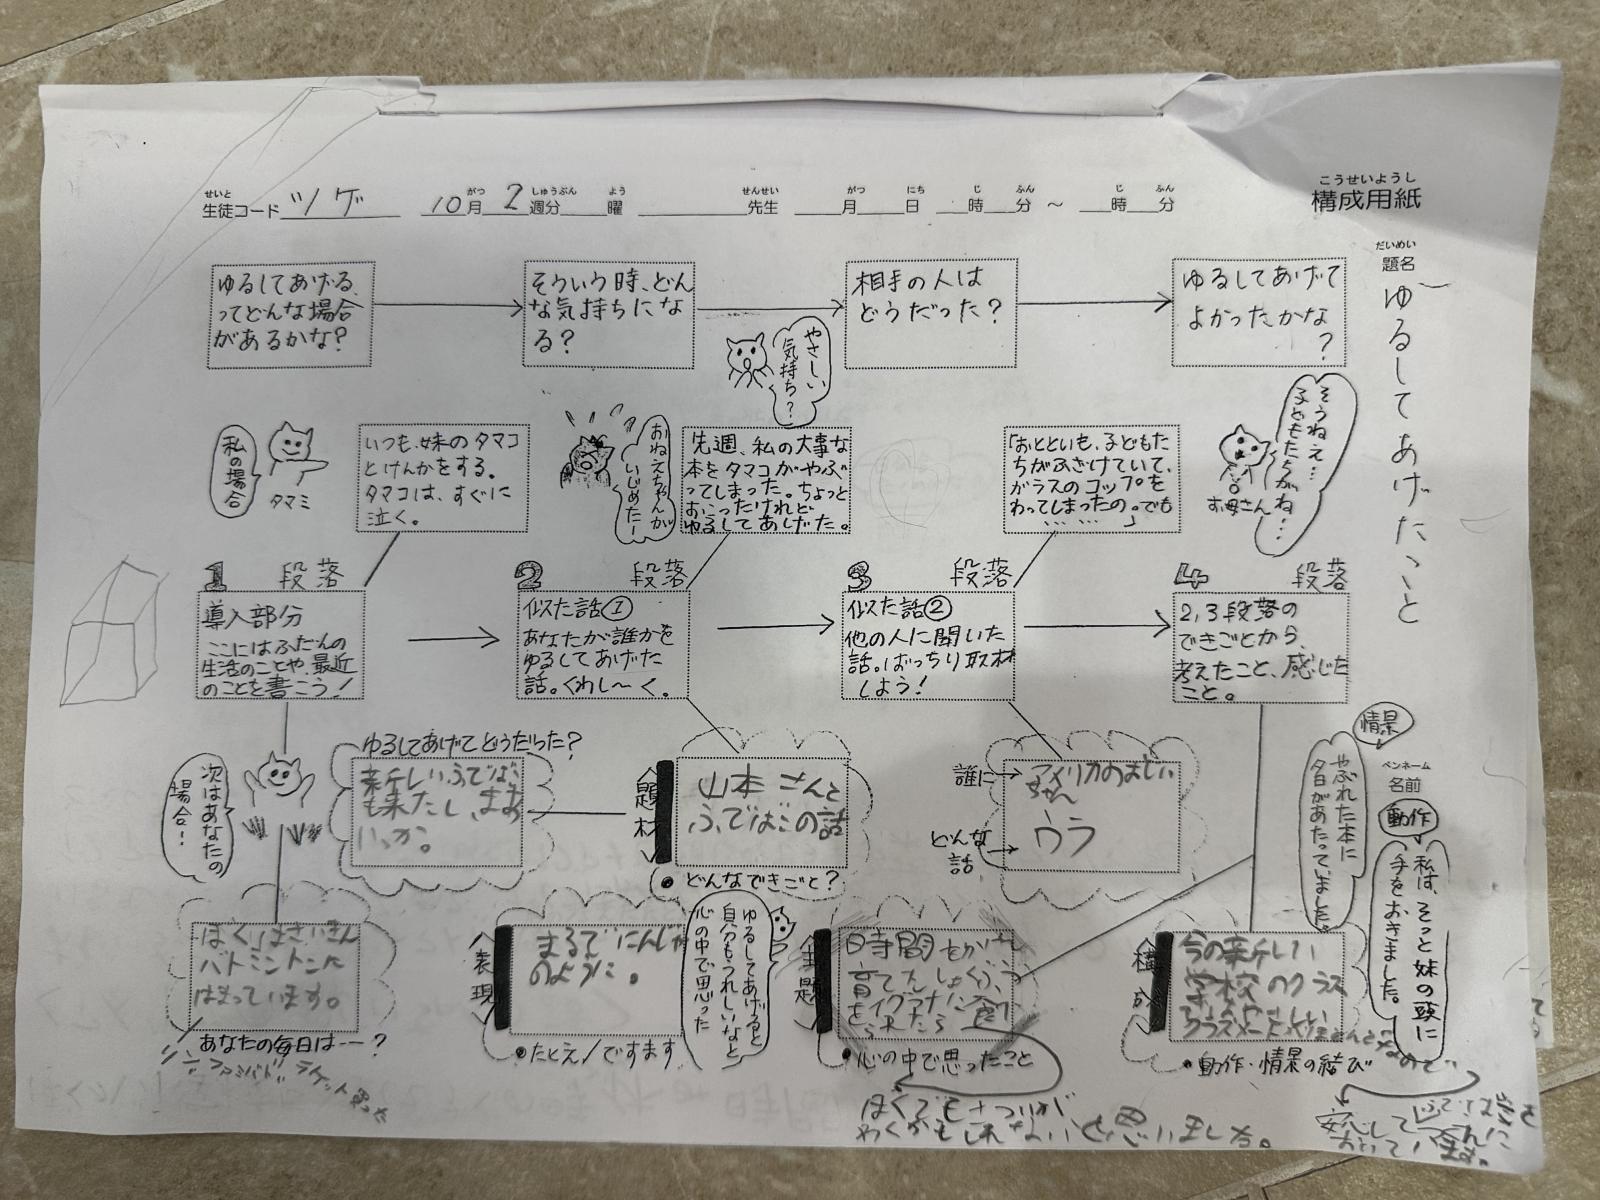 こうせいようし
構成用紙
せいと がつ しゅうぶん よう せんせい がつ にち じ ふん じ ふん
生徒コード ツゲ 10月 2週分 曜 先生 月 日 時 分 ～ 時 分
だいめい
題名
ゆるしてあげたこと
ゆるしてあげる
ってどんな場合
があるかな?
そういう時、どん
な気持ちにな
る?
相手の人は
どうだった?
ゆるしてあげて
よかったかな
?
私の場合
タマミ
いつも、妹のタマコ
とけんかをする。
タマコは、すぐに
泣く。
おねえちゃんが
いじめたー
やさしい
気持ち?
先週、私の大事な
本をタマコがやぶ
ってしまった。ちょっと
おこったけれど
ゆるしてあげた。
「おとといも、子どもた
ちがふざけていて、
ガラスのコップを
わってしまったの。でも
……」
そうねえ…
子どもたちがね…
お母さん
1 段落
導入部分
ここにはふだんの
生活のことや、最近
のことを書こう!
2 段落
似た話①
あなたが誰かを
ゆるしてあげた
話。くわし〜く。
3 段落
似た話②
他の人に聞いた
話。ばっちり取材
しよう!
4 段落
2,3段落の
できごとから、
考えたこと、感じた
こと。
次はあなたの
場合!
ゆるしてあげてどうだった?
新しいふでばこ
も来たし、まあ
いっか。
題材
山本さんと
ふでばこの話
●どんなできごと?
誰に→
アメリカのおじい
ちゃん
どんな
話→
ウラ
情景
やぶれた本に
夕日があたっていました。
ペンネーム
名前
動作
私は、そっと妹の頭に
手をおきました。
ぼくはさいきん
バトミントンに
はまっています。
あなたの毎日は…?
ラケット買った
表現
まるでにんじゃ
のように。
●たとえ/ですます
ゆるしてあげると
自分もうれしいなと
心の中で思った
主題
時間をかけ
育てた
をイグアナに食
られたら
●心の中で思ったこと
ぼくでもさついが
わくかもしれないと思いました。
今の新しい
学校のクラス
●動作・情景の結び
安心して